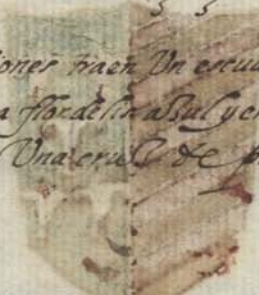 ones traen Vn escud
a flor de lis assul y en
Vna crus de